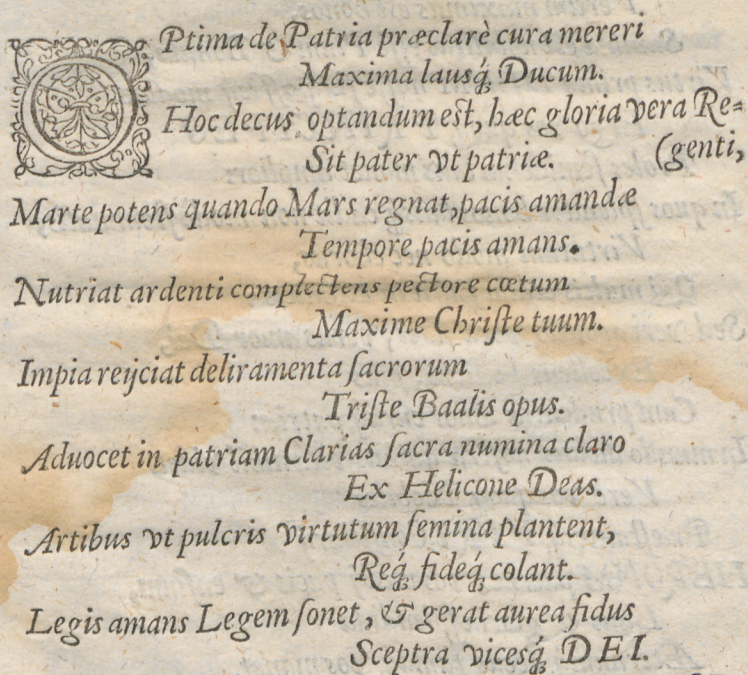 OPtima de Patria præclarè cura mereri
Maxima lausq́; Ducum.
Hoc decus optandum est, hæc gloria vera Re=
Sit pater vt patriæ. (genti,
Marte potens quando Mars regnat, pacis amandæ
Tempore pacis amans.
Nutriat ardenti complectens pectore cœtum
Maxime Chriſte tuum.
Impia reijciat deliramenta ſacrorum
Triſte Baalis opus.
Aduocet in patriam Clarias ſacra numina claro
Ex Helicone Deas.
Artibus vt pulcris virtutum ſemina plantent,
Req́; fideq́; colant.
Legis amans Legem ſonet, & gerat aurea fidus
Sceptra vicesq́; DEI.